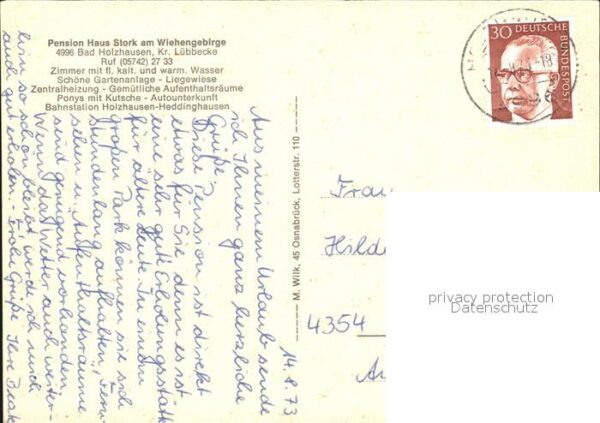 Pension Haus Stork am Wiehengebirge
4996 Bad Holzhausen, Kr. Lübbecke
Ruf (05742) 27 33
Zimmer mit fl. kalt. und warm. Wasser
Schöne Gartenanlage - Liegewiese
Zentralheizung - Gemütliche Aufenthaltsräume
Ponys mit Kutsche - Autounterkunft
Bahnstation Holzhausen-Heddinghausen
Aus meinem Urlaub sende
ich Ihnen ganz herzliche
Grüße.
Diese Pension ist direkt
etwas für Sie, denn es ist
eine sehr gute Erholungsstätte
für ältere Leute. In einem
großen Park können sie sich
stundenlang aufhalten,
sehen u. Aufenthaltsräume
sind genügend vorhanden.
Wenn das Wetter auch weiter-
hin so schön bleibt, werde ich mich
auch gut erholen. - Frohe Grüße Ihre
14. 8. 73
M. Wilk, 45 Osnabrück, Lotterstr. 110
30 DEUTSCHE
BUNDESPOST
Frau
Hilde
4354
privacy protection
Datenschutz